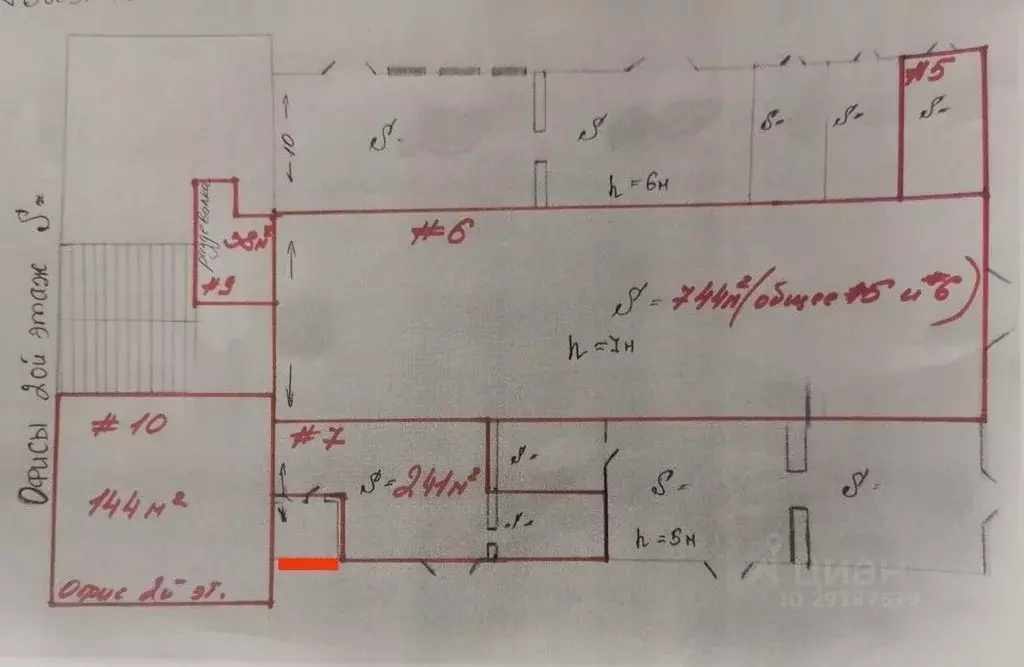 #5
S-
S
S-
S-
S-
10
h = 6м
раздевалка
38м²
#9
#6
S = 744м² (общее #5 и #6)
h = 7м
Офисы 2ой этаж S=
#10
144м²
Офис 2й эт.
#7
S = 241м²
S-
S-
S-
h = 5м
S-
циан
ID 29187679